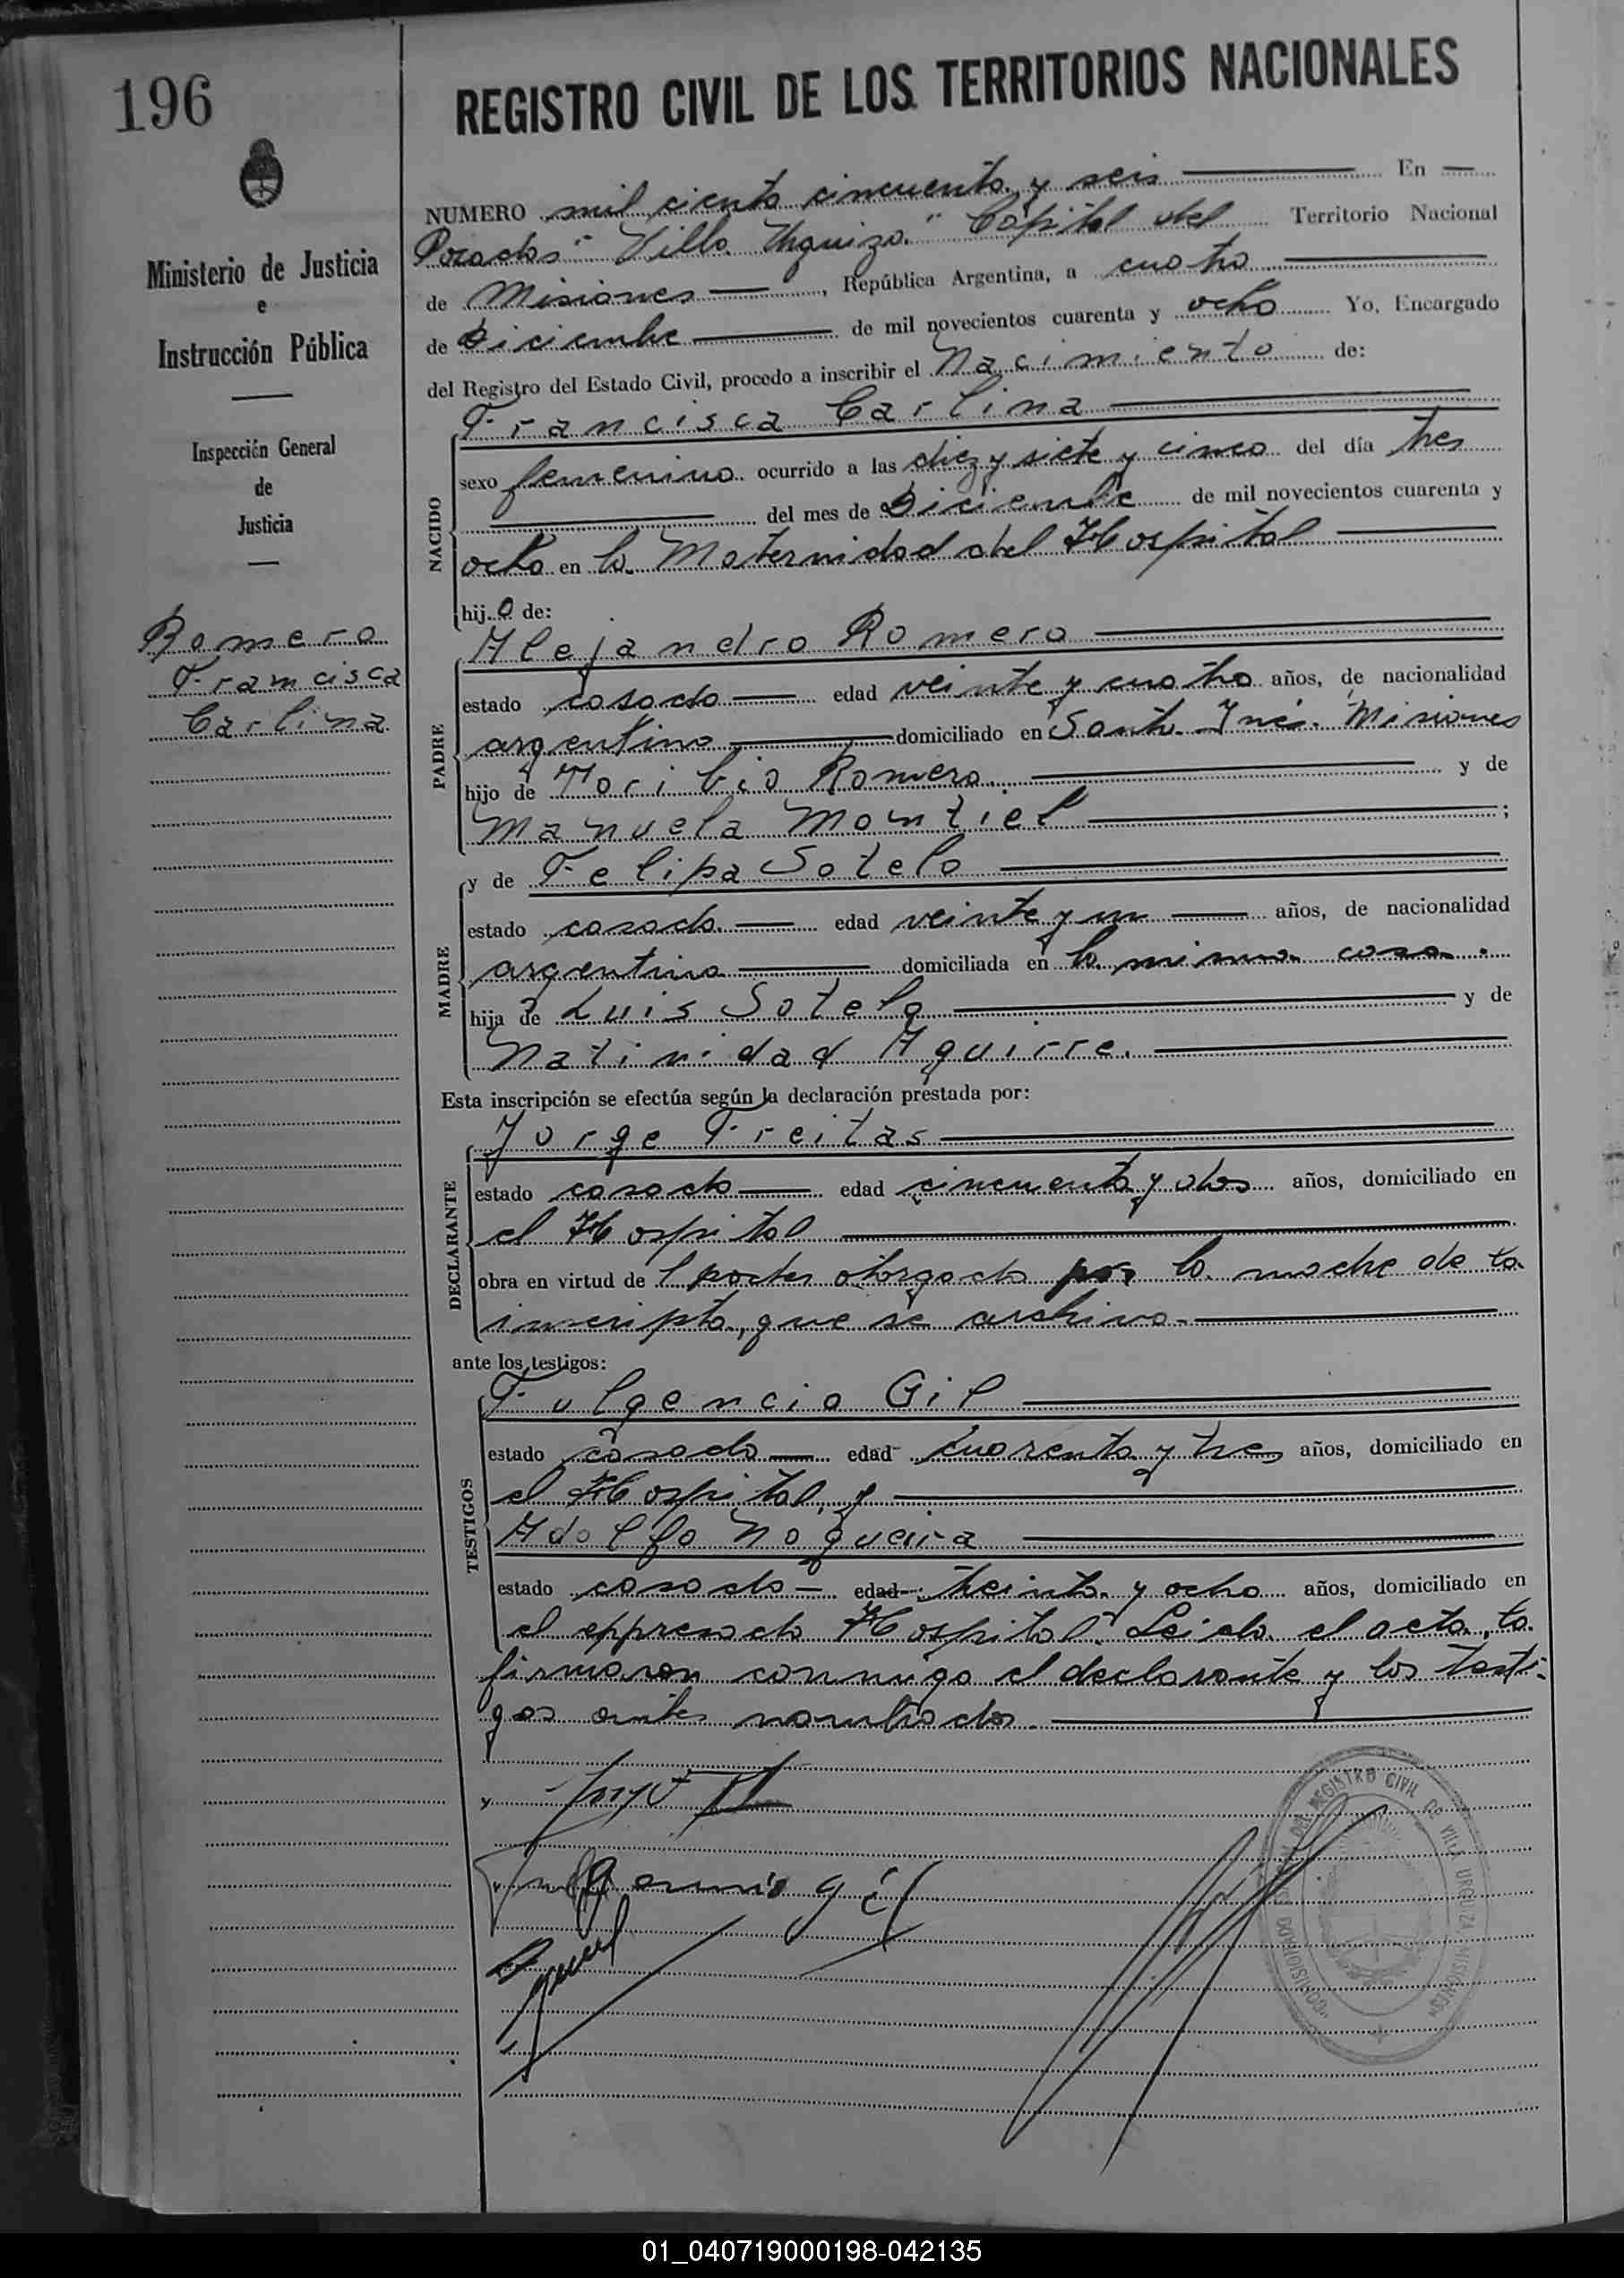 196
REGISTRO CIVIL DE LOS TERRITORIOS NACIONALES
Ministerio de Justicia
e
Instrucción Pública
Inspección General
de
Justicia
Romero
Francisca
Carlina
NUMERO mil ciento cincuenta y seis En
Posadas "Villa Urquiza" Capital del Territorio Nacional
de Misiones, República Argentina, a cuatro
de Diciembre de mil novecientos cuarenta y ocho Yo, Encargado
del Registro del Estado Civil, procedo a inscribir el Nacimiento de:
NACIDO
Francisca Carlina
sexo femenino ocurrido a las diez y siete y cinco del día tres
del mes de Diciembre de mil novecientos cuarenta y
ocho en la Maternidad del Hospital
hij a de:
PADRE
Alejandro Romero
estado casado edad veinte y cuatro años, de nacionalidad
argentina domiciliado en Santa Inés. Misiones
hijo de Toribio Romero y de
Manuela Montiel ;
MADRE
y de Felipa Sotelo
estado casada edad veinte y un años, de nacionalidad
argentina domiciliada en la misma casa.
hija de Luis Sotelo y de
Natividad Aguirre.
Esta inscripción se efectúa según la declaración prestada por:
DECLARANTE
Jorge Freitas
estado casado edad cincuenta y dos años, domiciliado en
el Hospital
obra en virtud de l poder otorgado por la madre de la
inscripta, que se archiva.
ante los testigos:
TESTIGOS
Fulgencio Gil
estado casado edad cuarenta y tres años, domiciliado en
el Hospital, y
Adolfo Nogueira
estado casado edad treinta y ocho años, domiciliado en
el expresado Hospital. Leida el acta, la
firmaron conmigo el declarante y los testi-
gos antes nombrados.
REGISTRO CIVIL DE VILLA URQUIZA MISIONES
01_040719000198-042135